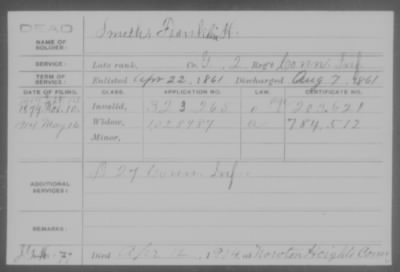 DEAD
NAME OF SOLDIER: Smith, Franklin H.
SERVICE: Late rank, Co G, 2 Reg't Conn. Inf
TERM OF SERVICE: Enlisted Apr 22, 1861 Discharged Aug 7, 1861
DATE OF FILING. CLASS. APPLICATION NO. LAW. CERTIFICATE NO.
1879 Invalid, 323,265 203,621
1914 May 16 Widow, 1028487 a 784,512
Minor,
ADDITIONAL SERVICES: B 27 Conn. Inf.
REMARKS:
Died Apr 12, 1914, at Noroton Heights Conn